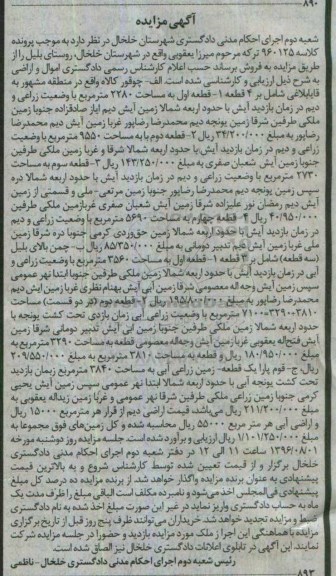 ۸۹۰
آگهی مزایده
شعبه دوم اجرای احکام مدنی دادگستری شهرستان خلخال در نظر دارد به موجب پرونده
کلاسه ۹۶۰۱۲۵ ترکه مرحوم میرزا یعقوبی واقع در شهرستان خلخال، روستای بلیل را از
طریق مزایده به فروش برساند حسب اعلام کارشناس رسمی دادگستری اموال و اراضی
به شرح ذیل ارزیابی و کارشناسی شده است. الف- چوقور کالاه واقع در منطقه مشهور به
قابلاغلی شامل بر ۴ قطعه ۱-قطعه اول به مساحت ۲۲۸۰ مترمربع با وضعیت زراعی و
دیم در زمان بازدید آیش با حدود اربعه شمالا زمین آیش دیم ایاز صادقزاده جنوبا زمین
ملکی طرفین شرقا زمین یونجه دیم محمدرضا رضاپور غربا زمین آیش دیم محمدرضا
رضاپور به مبلغ ۳۴/۲۰۰/۰۰۰ ریال ۲-قطعه دوم با به مساحت ۹۵۵۰ مترمربع با وضعیت
زراعی و دیم در زمان بازدید آیش با حدود اربعه شمالا شرقا و غربا زمین ملکی طرفین
جنوبا زمین آیش شعبان صفری به مبلغ ۱۴۳/۲۵۰/۰۰۰ ریال ۳-قطعه سوم به مساحت
۲۷۳۰ مترمربع با وضعیت زراعی و دیم در زمان بازدید آیش با حدود اربعه شمالا دره
سپس زمین یونجه دیم محمدرضا رضاپور جنوبا زمین مرتعی-ملی و قسمتی از زمین
آیش دیم رمضان نور علیزاده شرقا زمین آیش شعبان صفری غربازمین ملکی طرفین
۴۰/۹۵۰/۰۰۰ ریال ۴-قطعه چهارم به مساحت ۵۶۹۰ مترمربع با وضعیت زراعی و دیم
در زمان بازدید آیش با حدود اربعه شمالا زمین حق‌وردی کرمی جنوبا دره شرقا زمین
ملی غربا زمین آیش دیم تدبیر دومانی به مبلغ ۸۵/۳۵۰/۰۰۰ ریال ب-چمن بالای بلیل
(سه قطعه) شامل بر ۳ قطعه ۱-قطعه اول به مساحت ۳۵۶۰ مترمربع با وضعیت زراعی و
آبی در زمان بازدید آیش با حدود اربعه شمالا زمین ملکی طرفین جنوبا ابتدا نهر عمومی
سپس زمین آیش وجه‌اله معصومی شرقا زمین آبی آیش بهنام نظری غربا زمین آیش دیم
محمدرضا رضاپور به مبلغ ۱۹۵/۸۰۰/۰۰۰ ریال ۲-قطعه دوم (در دو قسمت) مساحت
۳۸۱۰+۳۲۹۰=۷۱۰۰ مترمربع با وضعیت زراعی آبی زمان بازدی تحت کشت یونجه با
حدود اربعه شمالا زمین ملکی طرفین جنوبا زمین آبی آیش تدبیر دومانی شرقا زمین
آیش فتح‌اله یعقوبی غربا زمین آیش وجه‌اله معصومی قطعه به مساحت ۳۲۹۰ مترمربع به
مبلغ ۱۸۰/۹۵۰/۰۰۰ ریال و قطعه به مساحت ۳۸۱۰ مترمربع به مبلغ ۲۰۹/۵۵۰/۰۰۰
ریال. ج-قوم پارا یک قطعه- زمین زراعی آبی به مساحت ۳۸۴۰ مترمربع زمان بازدید
تحت کشت یونجه آبی با حدود اربعه شمالا ابتدا نهر عمومی سپس زمین آیش یحیی
کرمی جنوبا زمین زراعی ملکی طرفین شرقا نهر عمومی و غربا زمین زیداله یعقوبی به
مبلغ ۲۱۱/۲۰۰/۰۰۰ ریال می‌باشد. قیمت اراضی دیم از قرار هر مترمربع ۱۵۰۰۰ ریال
و اراضی آبی هر متر مربع ۵۵۰۰۰ ریال محاسبه شده و کل زمین‌های فوق مجموعا به
مبلغ ۱/۱۰۱/۲۵۰/۰۰۰ ریال ارزیابی و برآورد شده است. جلسه مزایده روز دوشنبه مورخه
۱۳۹۶/۰۸/۰۱ ساعت ۱۱ الی ۱۲ در دفتر شعبه دوم اجرای احکام مدنی دادگستری
خلخال برگزار و از قیمت تعیین شده توسط کارشناس شروع و به بالاترین قیمت
پیشنهادی به عنوان برنده مزایده واگذار خواهد شد. از برنده مزایده ده درصد کل مبلغ
پیشنهادی فی‌المجلس اخذ می‌شود و نامبرده مکلف است الباقی مبلغ را ظرف مدت یک
ماه به حساب دادگستری واریز نماید در غیر این صورت مبلغ اخذ شده به نام دادگستری
ضبط و مزایده تجدید خواهد شد. خریداران می‌توانند ظرف پنج روز قبل از تاریخ برگزاری
مزایده با هماهنگی این اجرا از ملک مورد مزایده بازدید و حضورا در جلسه مزایده شرکت
نمایند. این آگهی در تابلوی اعلانات دادگستری خلخال نیز الصاق شده است.
رئیس شعبه دوم اجرای احکام مدنی دادگستری خلخال- ناظمی
۸۹۳